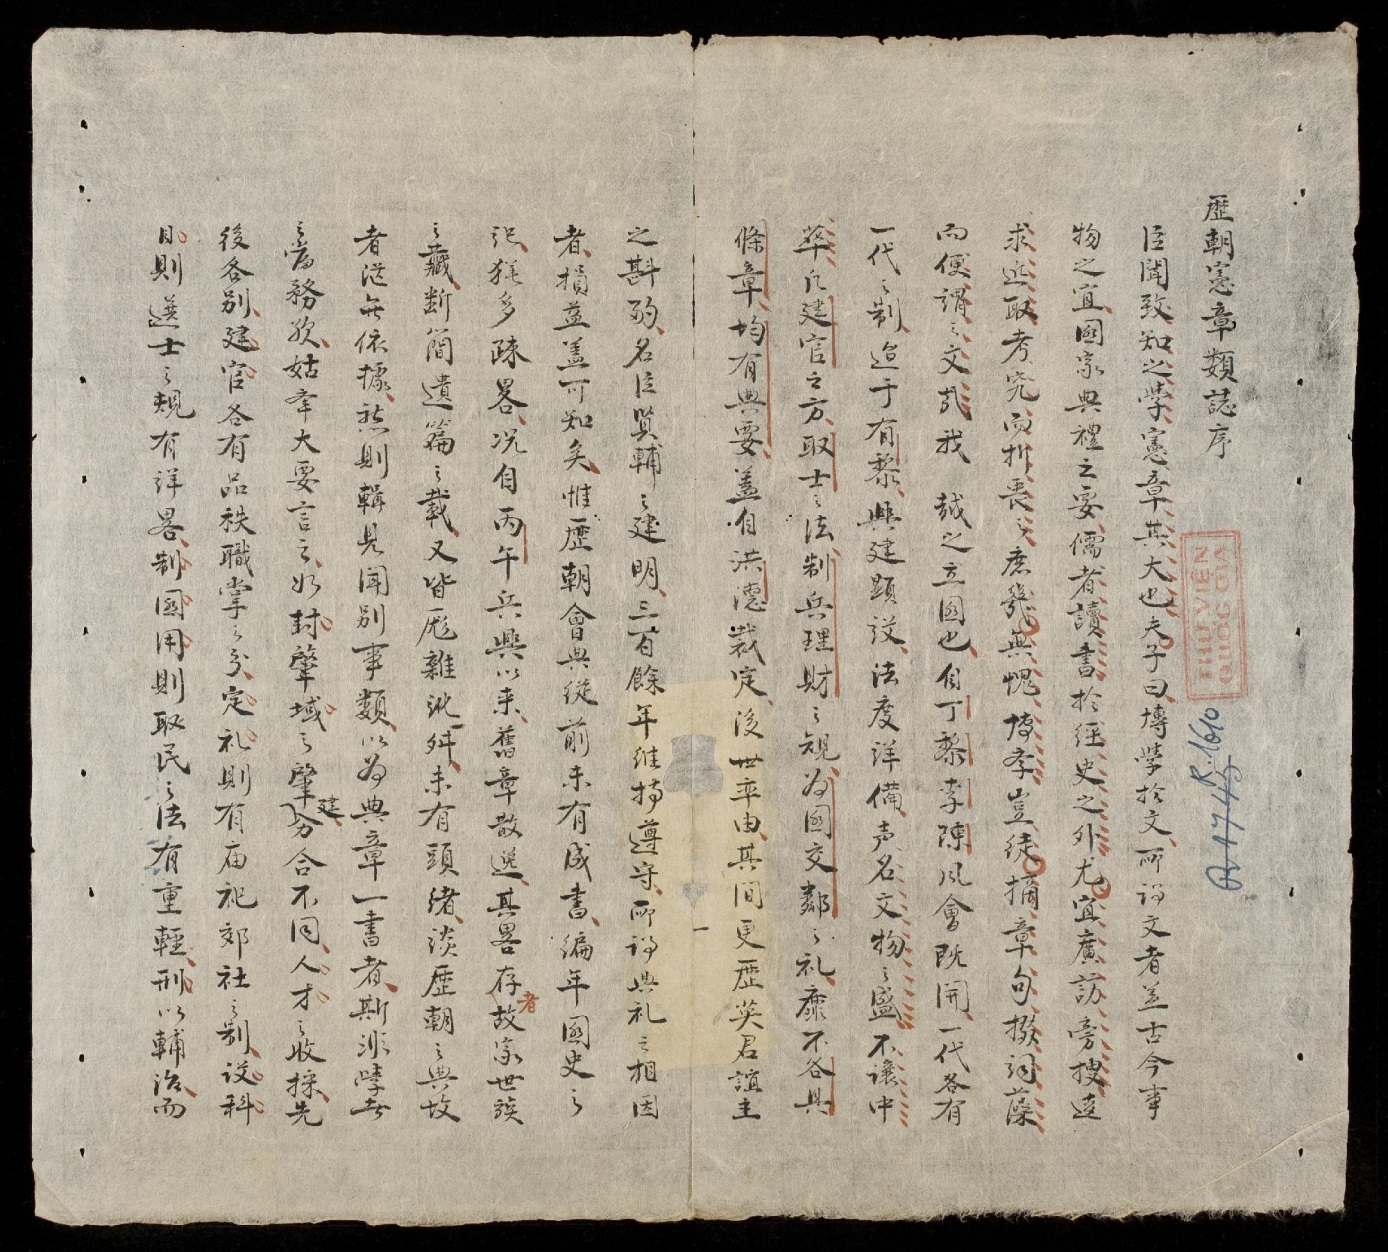 歷朝憲章類誌序
臣聞致知之學憲章其大也夫子曰博學於文所謂文者並古今事
物之宜國家典禮之要儒者讀書於經史之外尤宜廣訪旁搜遠
求近取考究而折衷之庶幾無愧博孝豈徒摘章句掇詞藻
而便謂之文哉我 越之立國也自丁黎李陳風會既開一代各有
一代之制迨于有黎興建顯設法度詳備声名文物之盛不讓中
華凡建官之方取士之法制兵理財之規為國交鄰之礼靡不各具
條章均有典要蓋自洪德裁定後世率由其間更歷英君誼主
之斟酌名臣賢輔之建明三百餘年維持遵守所謂典礼之相因
者損益盖可知矣惟歷朝會典從前未有成書編年國史之
記猶多疎畧况自丙午兵興以來舊章散逸其畧存者故家世族
之藏断簡遺篇之載又皆厖雜訛舛未有頭緒談歷朝之典故
者茫無依據然則輯見聞別事類以為典章一書者斯非學者
之當務欤姑率大要言之如封肇域之肇建分合不同人才之收採先
後各別建官各有品秩職掌之分定礼則有庙祀郊社之制設科
目則選士之規有詳畧制國用則取民之法有重輕刑以輔治而
THƯ VIỆN
QUỐC GIA
R.1610
A 17443
一